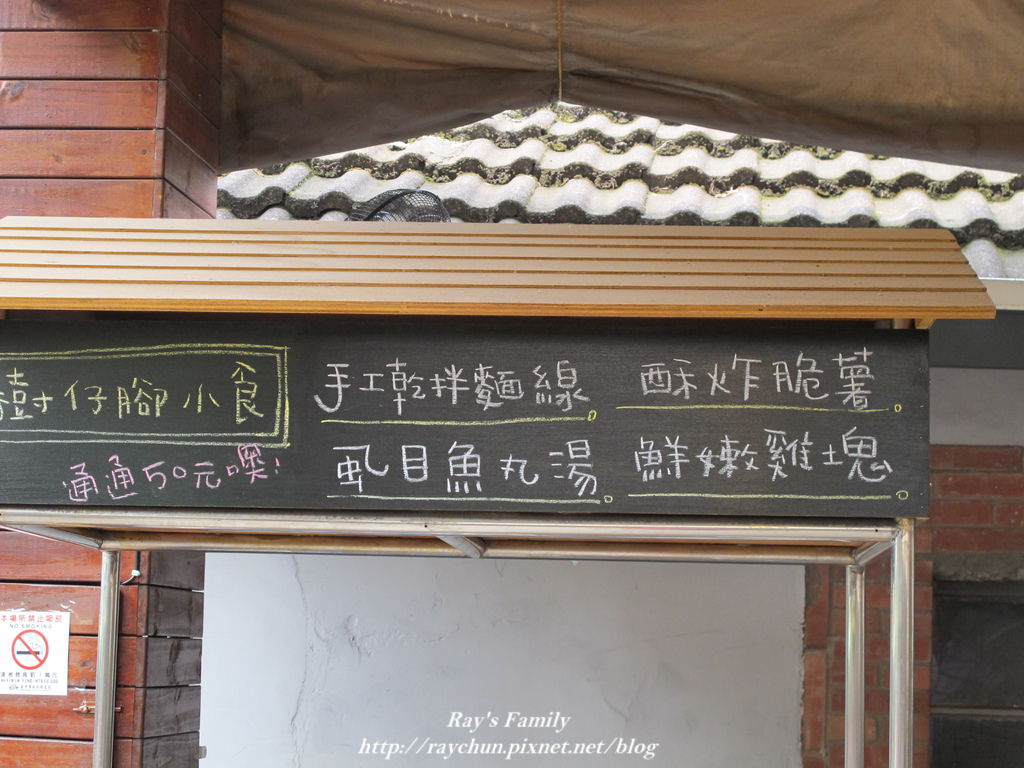 樹仔腳小食
通通50元噢!
手工乾拌麵線。
虱目魚丸湯。
酥炸脆薯。
鮮嫩雞塊。
本場所禁止吸菸
NO SMOKING
Ray's Family
http://raychun.pixnet.net/blog